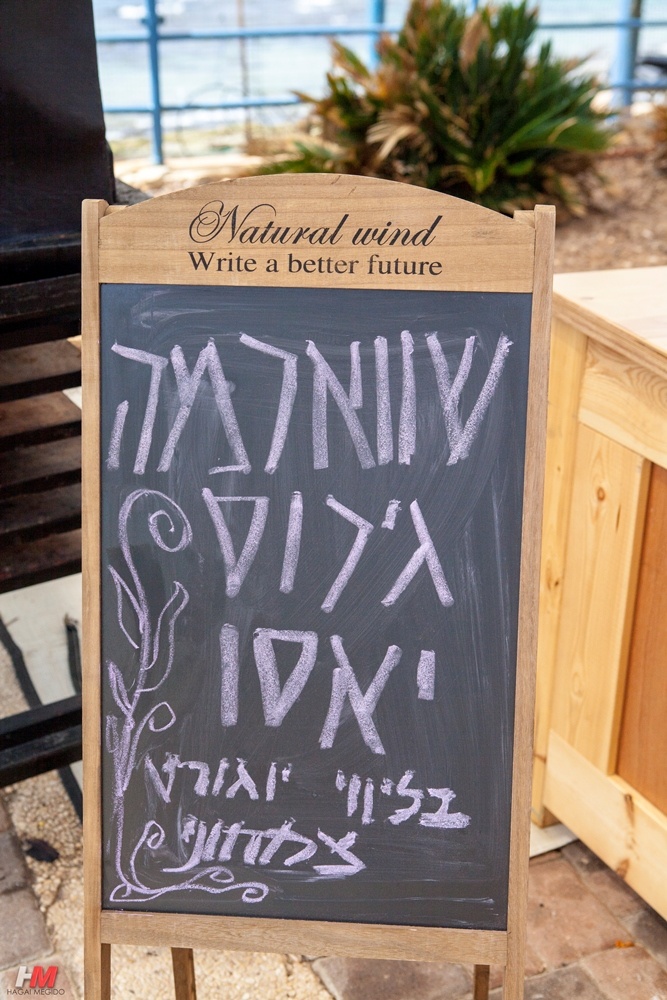 Natural wind
Write a better future
שווארמה
ג'רוס
יאסו
בליווי יוגורט
צמחוני
HM
HAGAI MEGIDO